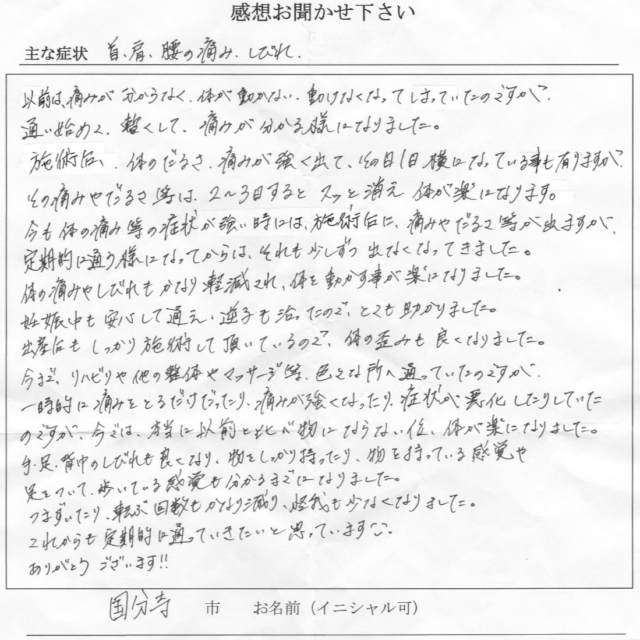 感想お聞かせ下さい
主な症状 首、肩、腰の痛み、しびれ、
以前は、痛みが分からなく、体が動かない、動けなくなってしまっていたのですが、
通い始めて、軽くして、痛みが分かる様になりました。
施術后、体のだるさ、痛みが強く出て、その日1日横になっている事も有りますが、
その痛みやだるさ等は、2〜3日するとスッと消え 体が楽になります。
今も体の痛み等の症状が強い時には、施術后に、痛みやだるさ等が出ますが、
定期的に通う様になってからは、それも少しずつ出なくなってきました。
体の痛みやしびれもかなり軽減され、体を動かす事が楽になりました。
妊娠中も安心して通え、逆子も治ったので、とても助かりました。
出産后もしっかり施術して頂いているので、体の歪みも良くなりました。
今まで、リハビリや他の整体やマッサージ等、色々な所へ通っていたのですが、
一時的に痛みをとるだけだったり、痛みが強くなったり、症状が悪化したりしていた
のですが、今では、本当に以前と比べ物にならない位、体が楽になりました。
手・足・背中のしびれも良くなり、物をしっかり持ったり、物を持っている感覚や
足をついて、歩いている感覚も分かるまでになりました。
つまずいたり、転ぶ回数もかなり減り、怪我も少なくなりました。
これからも定期的に通っていきたいと思っています^^
ありがとうございます!!
国分寺 市 お名前(イニシャル可)